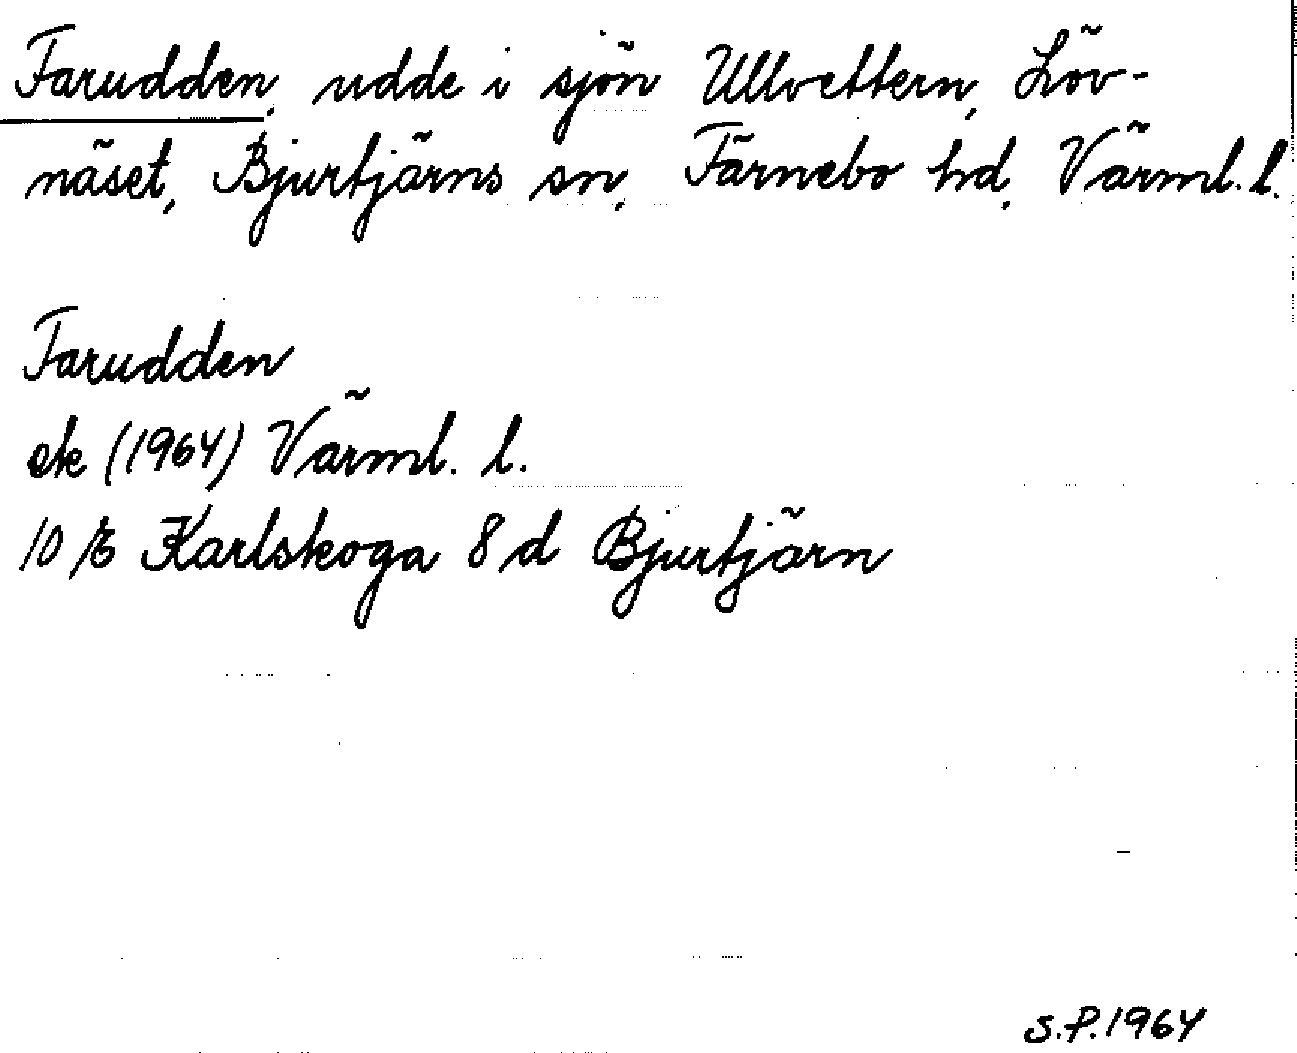 Farudden, udde i sjön Ullvettern, Löv-
näset, Bjurtjärns sn, Färnebo hd, Värml. l.
Farudden
ek (1964) Värml. l.
10 E Karlskoga 8 d Bjurtjärn
S.P. 1964